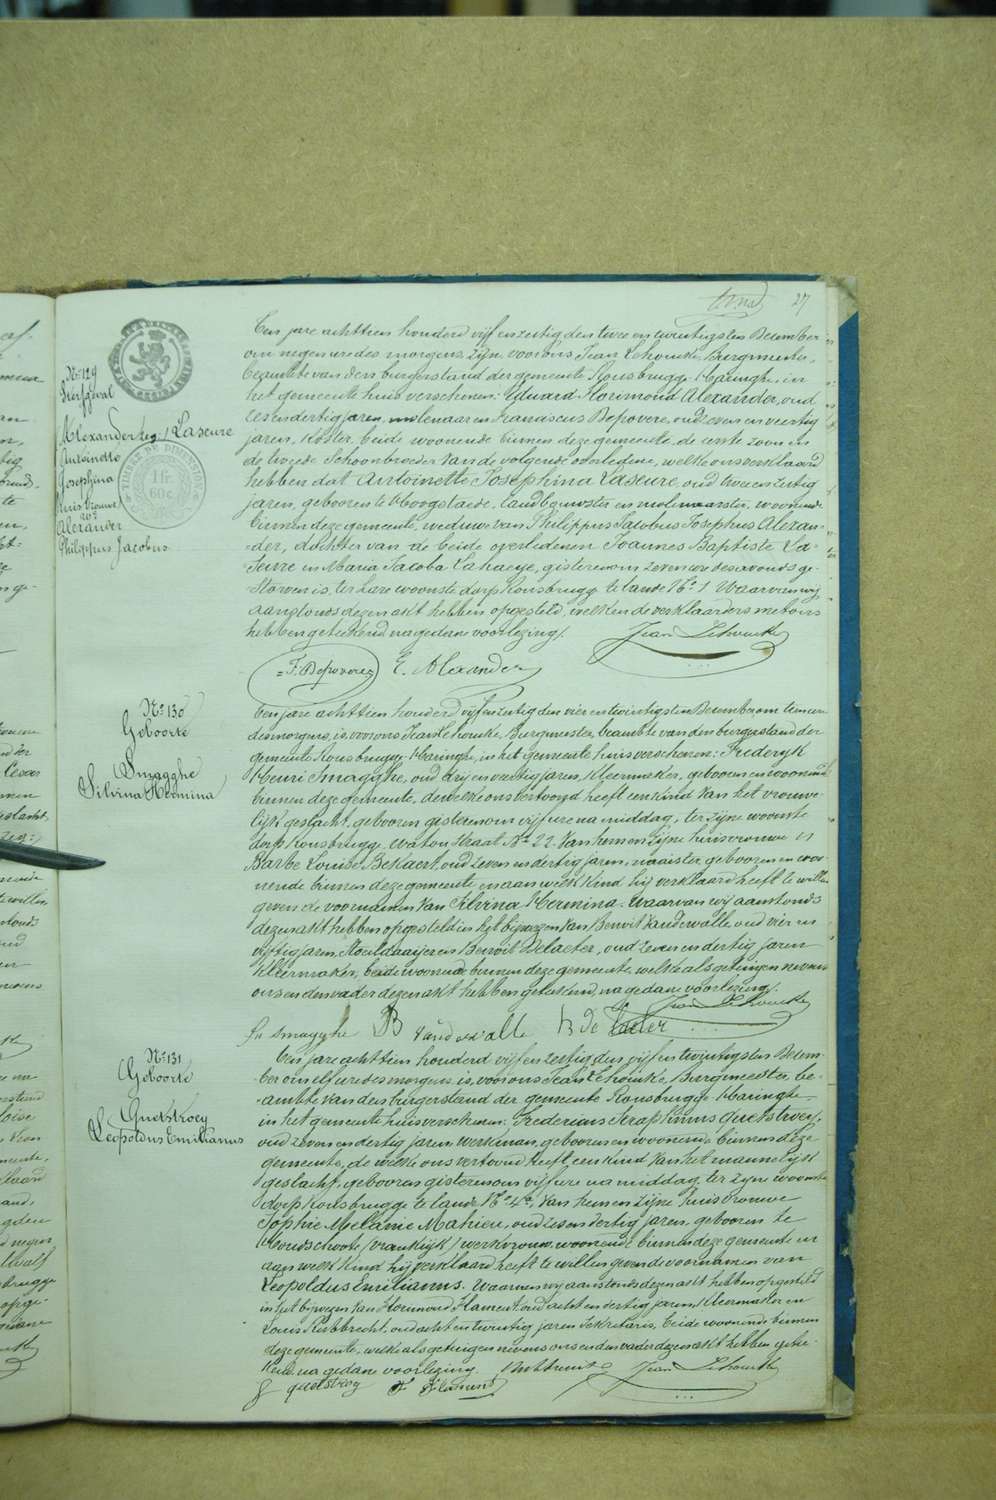 27
Een jare achttien honderd vijf en zestig den twee en twintigsten December
om negen ure des morgens, zijn voor ons Jean Lehoucke Burgmeester,
beambte van den burgerstand der gemeente Rousbrugge-Haringhe, in
het gemeente huis verschenen: Eduard Florimond Alexander, oud
zes en dertig jaren, molenaar en Franciscus Depovere, oud zeven en veertig
jaren, Koster, beide woonende binnen deze gemeente, de eerste zoon en
de tweede Schoonbroeder van de volgende overledene, welke ons verklaard
hebben dat Antoinette Josephina Laseure, oud twee en zestig
jaren, geboren te Hoogstaede, landbouwster en molenaarster, woonende
binnen deze gemeente, weduwe van Philippus Jacobus Josephus Alexan-
-der, dochter van de beide overledenen Joannes Baptiste La-
seure en Maria Jacoba Lahaeye, gisteren om zeven ure des avonds ge-
storven is, ter hare woonste dorp Rousbrugge te lande No 1 Waarvan wij
aanstonds dezen akt hebben opgesteld, welken de verklaarders met ons
hebben geteekend na gedane voorlezing.
Jean Lehoucke
F. Depovere E. Alexander
No 129
Sterfgeval
Alexander weg / Laseure
Antoinette
Josephina
huisvrouw
van
Alexander
Philippus Jacobus
TIMBRE DE DIMENSION
1 fr.
60 c.
No 130
Geboorte
Smagghe
Silvina Hermina
Een jare achttien honderd vijf en zestig den vier en twintigsten December om tien ure
des morgens, is, voor ons Jean Lehoucke, Burgmeester, beambte van den burgerstand der
gemeente Rousbrugge-Haringhe, in het gemeente huis verschenen: Frederyk
Henri Smagghe, oud drij en veertig jaren, Kleermaker, geboren en woonende
binnen deze gemeente, dewelke ons vertoond heeft een kind van het vrouwe-
lijk geslacht, geboren gisteren om vijf ure na middag, ter zijne woonste
dorp Rousbrugge Watou straat No 22. van hem en zijne huisvrouwe
Barbe Louise Bekaert, oud zeven en dertig jaren, naaister, geboren en woo-
nende binnen deze gemeente en aan welk kind hij verklaard heeft te willen
geven de voornamen van Silvina Hermina. Waarvan wij aanstonds
dezen akt hebben opgesteld in het bijwezen van Benoit Vandewalle oud vier en
vijftig jaren, Stoeldraaijer en Benoit Delaeter, oud zeven en dertig jaren
Kleermaker, beide woonende binnen deze gemeente, welke als getuigen nevens
ons en den vader dezen akt hebben geteekend, na gedane voorlezing.
Jean Lehoucke
Fr Smagghe B Vandewalle B De Laeter
No 131
Geboorte
Quetstroey
Leopoldus Emilianus
Een jare achttien honderd vijf en zestig den vijf en twintigsten Decem-
ber om elf ure des morgens, is, voor ons Jean Lehoucke Burgmeester, be-
-ambte van den burgerstand der gemeente Rousbrugge-Haringhe
in het gemeente huis verschenen: Federicus Seraphinus Quetstroey,
oud zeven en dertig jaren, werkman, geboren en woonende binnen deze
gemeente, de welke ons vertoond heeft een kind van het mannelijk
geslacht, geboren gisteren om vijf ure na middag, ter zijne woonste
dorp Rousbrugge te lande No 42, van hem en zijne huisvrouwe
Sophie Melanie Mahieu, oud zes en dertig jaren, geboren te
Hondschoote (Vrankrijk) werkvrouw, woonende binnen deze gemeente en
aan welk kind hij verklaard heeft te willen geven de voornamen van
Leopoldus Emilianus. Waarvan wij aanstonds dezen akt hebben opgesteld
in het bijwezen van Florimond Flament, oud acht en dertig jaren, Kleermaker en
Louis Rubbrecht, oud acht en twintig jaren Sekretaris, beide woonende binnen
deze gemeente, welke als getuigen nevens ons en den vader dezen akt hebben getee-
kend, na gedane voorlezing. Jean Lehoucke
quetstroy F Flament